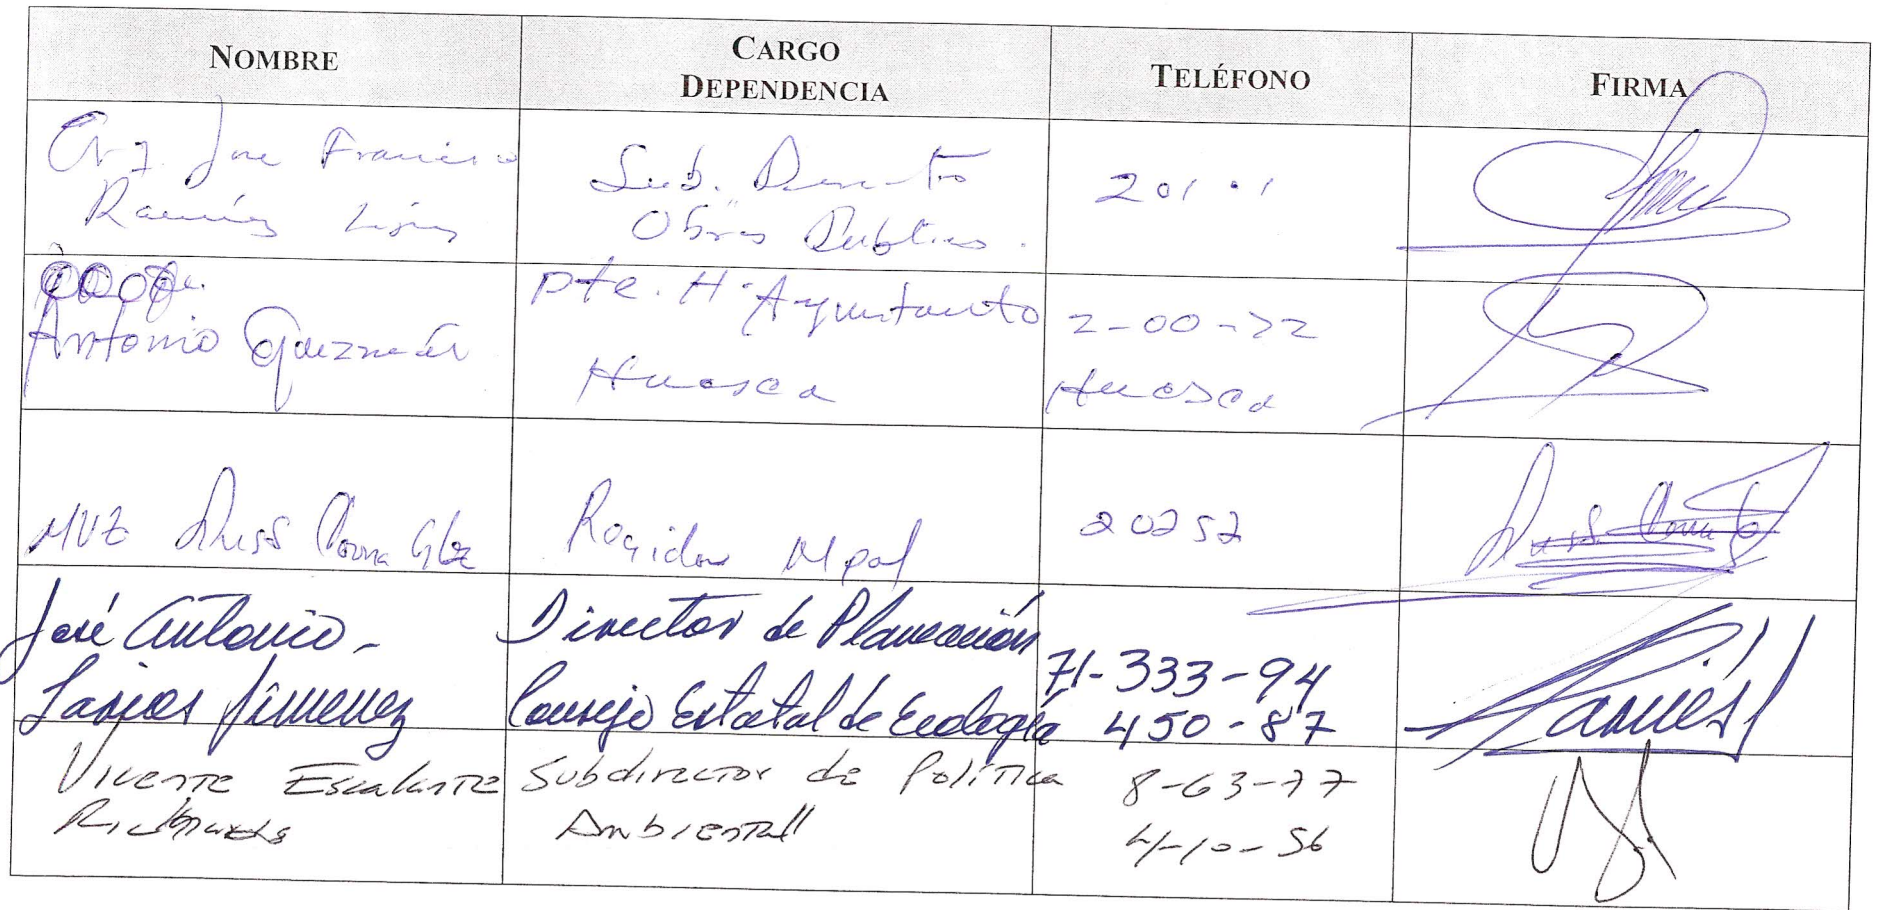 NOMBRE
CARGO
DEPENDENCIA
TELÉFONO
FIRMA
Arq. Jose Francisco
Ramírez
Sub. Director
Obras Publicas.
201
Antonio Guzmán
Pte. H. Ayuntamto
Huasca
2-00-72
Huasca
MVZ Luis Corona Glz
Regidor Mpal
20252
José Antonio -
Larios Jimenez
Director de Planeación
Consejo Estatal de Ecología
71-333-94
450-87
Vicente Escalante
Richards
Subdirector de Política
Ambiental
8-63-77
4-10-56